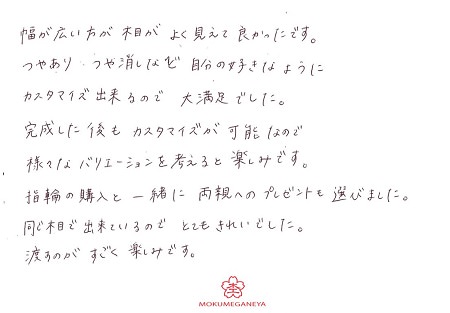 幅が広い方が木目がよく見えて良かったです。
つやあり つや消しなど 自分の好きなように
カスタマイズ出来るので 大満足でした。
完成した後もカスタマイズが可能なので
様々なバリエーションを考えると楽しみです。
指輪の購入と一緒に両親へのプレゼントも選びました。
同じ木目で出来ているのでとてもきれいでした。
渡すのがすごく楽しみです。
MOKUMEGANEYA